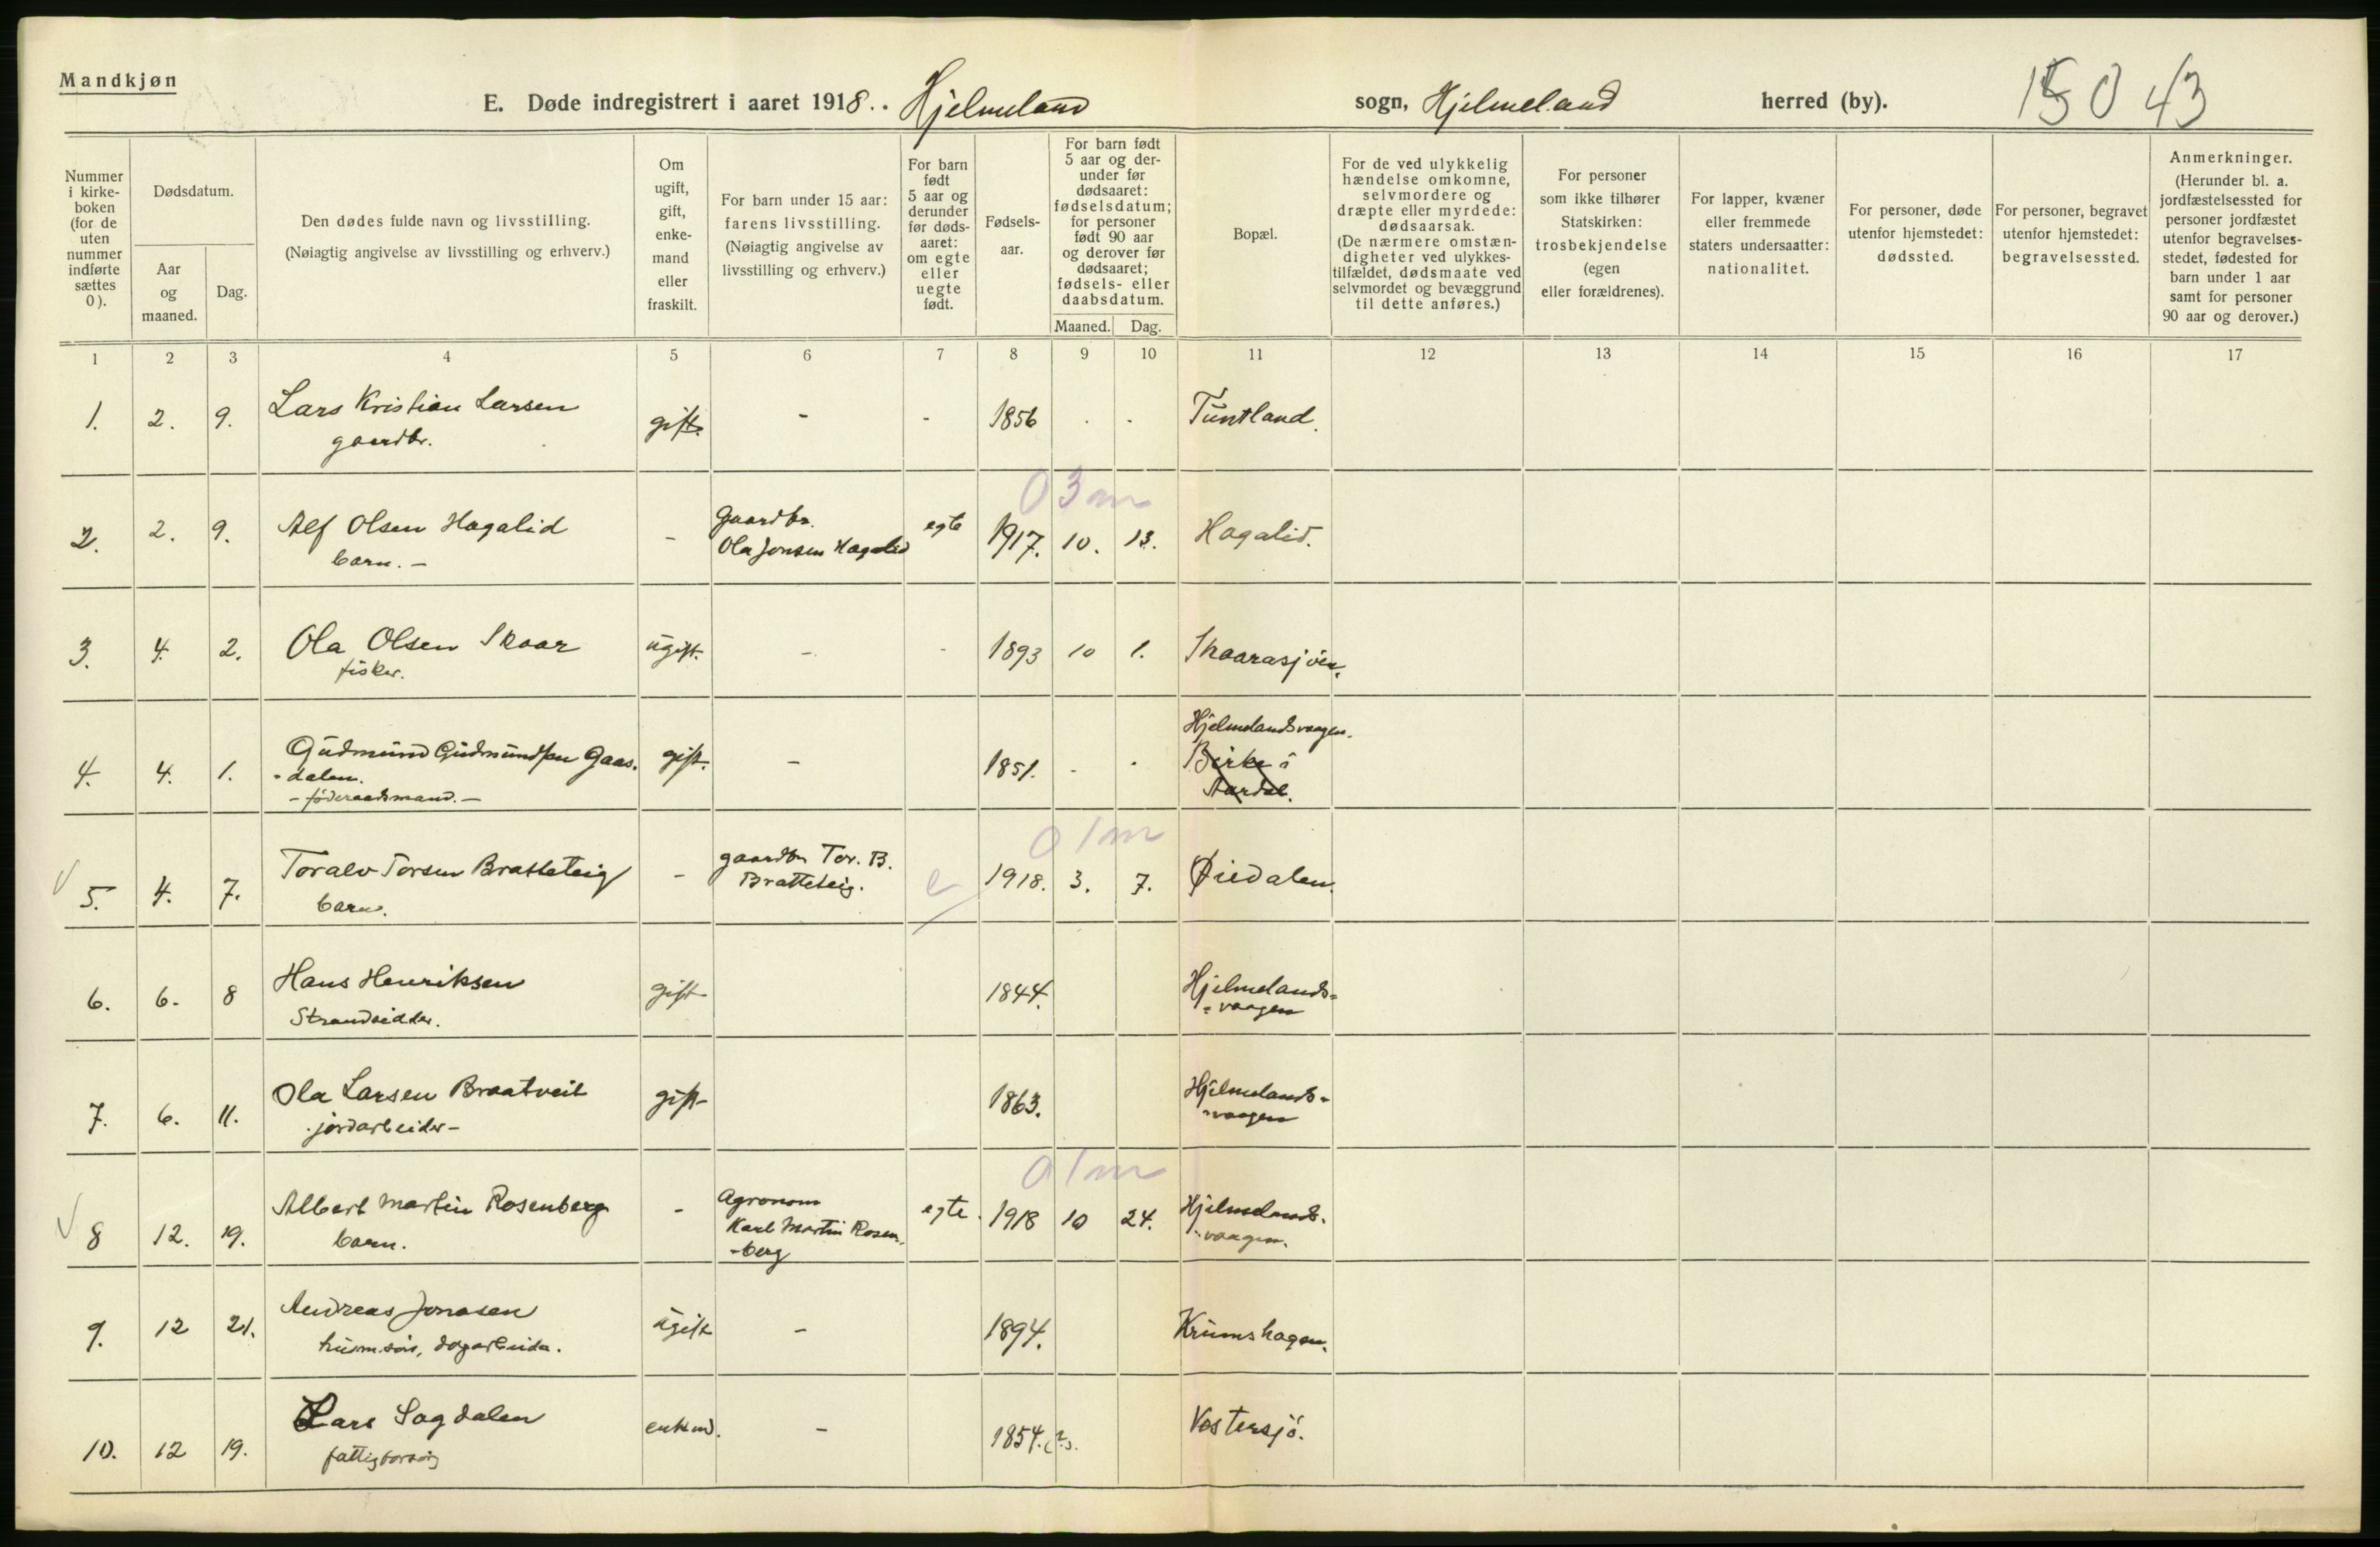 Mandkjøn
E. Døde indregistrert i aaret 1918. Hjelmeland sogn, Hjelmeland herred (by). 150 43
Nummer i kirke-boken (for de uten nummer indførte sættes 0).
Dødsdatum.
Aar og maaned.
Dag.
Den dødes fulde navn og livsstilling.
(Nøiagtig angivelse av livsstilling og erhverv.)
Om ugift, gift, enke-mand eller fraskilt.
For barn under 15 aar: farens livsstilling.
(Nøiagtig angivelse av livsstilling og erhverv.)
For barn født 5 aar og derunder før døds-aaret: om egte eller uegte født.
Fødsels-aar.
For barn født 5 aar og der-under før dødsaaret: fødselsdatum; for personer født 90 aar og derover før dødsaaret; fødsels- eller daabsdatum.
Maaned. Dag.
Bopæl.
For de ved ulykkelig hændelse omkomne, selvmordere og dræpte eller myrdede: dødsaarsak.
(De nærmere omstæn-digheter ved ulykkes-tilfældet, dødsmaate ved selvmordet og bevæggrund til dette anføres.)
For personer som ikke tilhører Statskirken: trosbekjendelse (egen eller forældrenes).
For lapper, kvæner eller fremmede staters undersaatter: nationalitet.
For personer, døde utenfor hjemstedet: dødssted.
For personer, begravet utenfor hjemstedet: begravelsessted.
Anmerkninger.
(Herunder bl. a. jordfæstelsessted for personer jordfæstet utenfor begravelses-stedet, fødested for barn under 1 aar samt for personer 90 aar og derover.)
1 2 3 4 5 6 7 8 9 10 11 12 13 14 15 16 17
1. 2. 9. Lars Kristian Larsen gift. - - 1856 . . Tuntland.
gaardbr.
03m
2. 2. 9. Alf Olsen Hagalid - Gaardbr. egte 1917. 10. 13. Hagalid.
barn. - Ola Jonsen Hagalid
3. 4. 2. Ola Olsen Skaar ugift. - - 1893 10 1. Skaarasjöen.
fisker.
Hjelmelandsvaagen.
4. 4. 1. Gudmund Gudmundsen Gaas- gift. - 1851. - . Birke i
-dalen. Aardal.
- föderaadsmand. -
01m
5. 4. 7. Toralv Torsen Bratteteig - gaardbr Tor. B. e 1918. 3. 7. Øiedalen.
barn. Bratteteig.
6. 6. 8 Hans Henriksen gift 1844. Hjelmelands-
Strandsidder. -vaagen
7. 6. 11. Ola Larsen Braatveit gift- 1863. Hjelmelands-
jordarbeider- -vaagen
01m
8 12. 19. Albert Martin Rosenberg - Agronom egte. 1918 10 24. Hjelmelands-
barn. Karl Martin Rosen- -vaagen.
-berg
9. 12 21. Andreas Jonasen ugift - 1894. Krumshagen.
husm.søn, dagarbeider.
10. 12 19. Lars Sagdalen enkmd. - 1854.(?). Vostersjö.
fattigforsørg